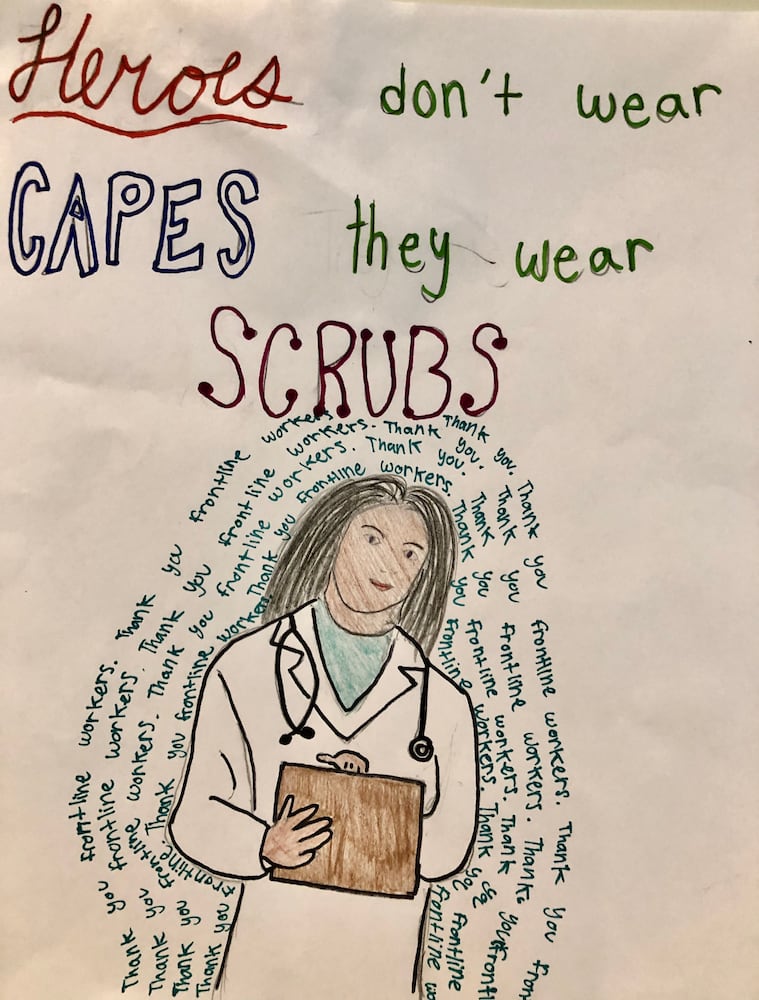 Heroes don't wear
CAPES they wear
SCRUBS
Thank you frontline workers. Thank you frontline workers. Thank you. Thank you frontline workers. Thank you fron
Thank you frontline workers. Thank you frontline workers. Thank you. Thank you frontline workers. Thank you
Thank you frontline workers. Thank you frontline workers. Thank you. Thank you frontline workers. Thank you frontline
Thank you frontline. Thank you frontline workers Thank you frontline workers. Thank you frontline workers. Thank you frontline wo